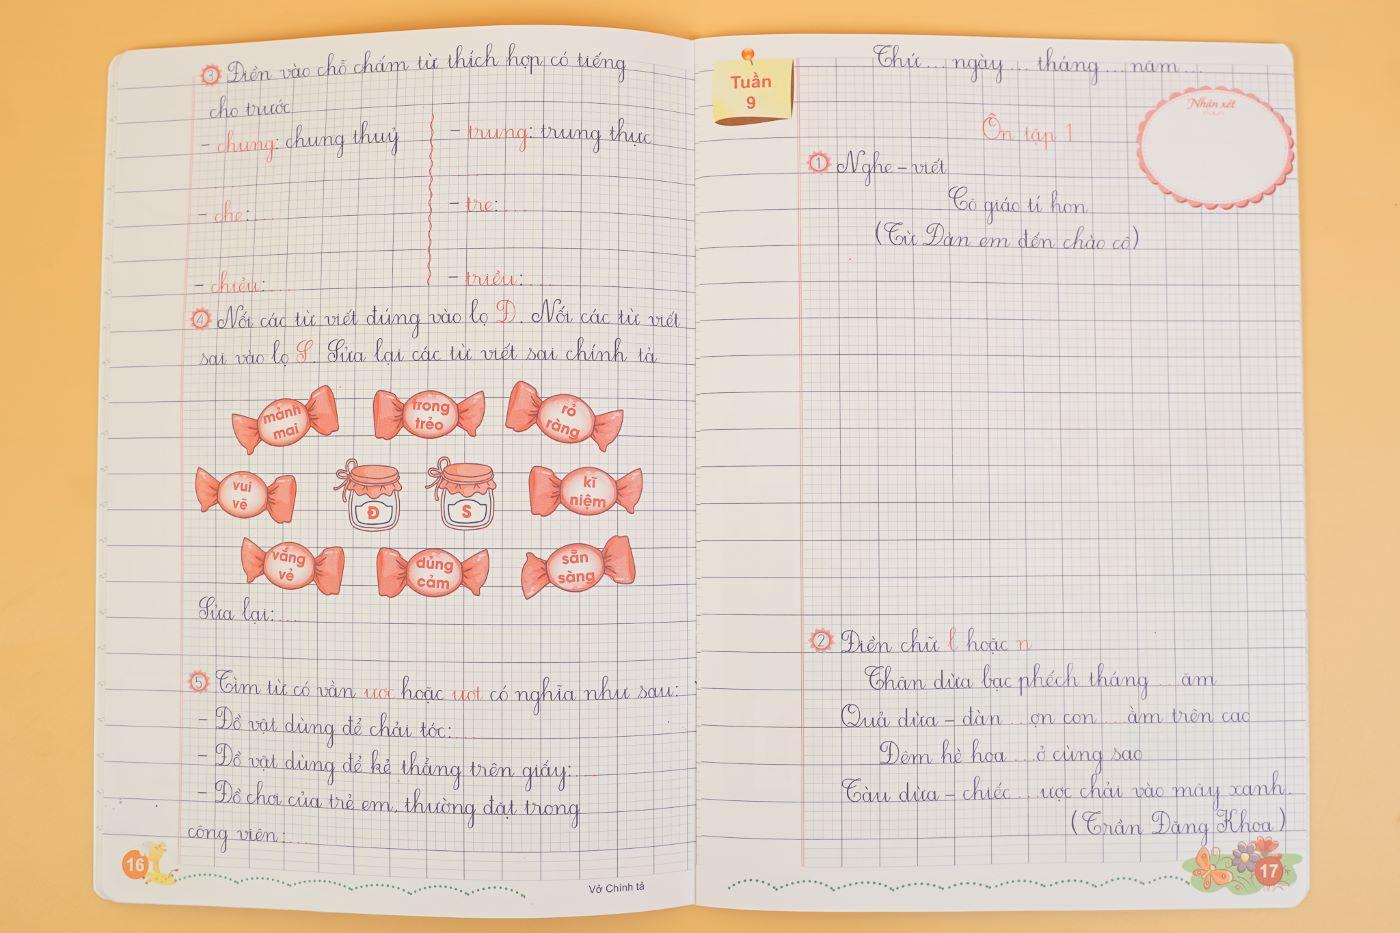 3 Điền vào chỗ chấm từ thích hợp có tiếng
cho trước
- chung: chung thuỷ
- trung: trung thực
- che: ....
- tre: ....
- chiều: ....
- triều: ....
4 Nối các từ viết đúng vào lọ Đ. Nối các từ viết
sai vào lọ S. Sửa lại các từ viết sai chính tả
mảnh
mai
trong
trẻo
rỏ
ràng
vui
vẽ
Đ
S
kĩ
niệm
vắng
vẻ
dủng
cảm
sẵn
sàng
Sửa lại: ....
5 Tìm từ có vần ươc hoặc ươt có nghĩa như sau:
- Đồ vật dùng để chải tóc: ....
- Đồ vật dùng để kẻ thẳng trên giấy: ....
- Đồ chơi của trẻ em, thường đặt trong
công viên: ....
16
Vở Chính tả
Tuần
9
Thứ ... ngày ... tháng ... năm ...
Nhận xét
Ôn tập 1
1 Nghe - viết
Cô giáo tí hon
(Từ Đàn em đến chào cô)
2 Điền chữ l hoặc n
Thân dừa bạc phếch tháng ... ăm
Quả dừa - đàn ... ợn con ... ằm trên cao
Đêm hè hoa ... ở cùng sao
Tàu dừa - chiếc ... ược chải vào mây xanh.
(Trần Đăng Khoa)
17